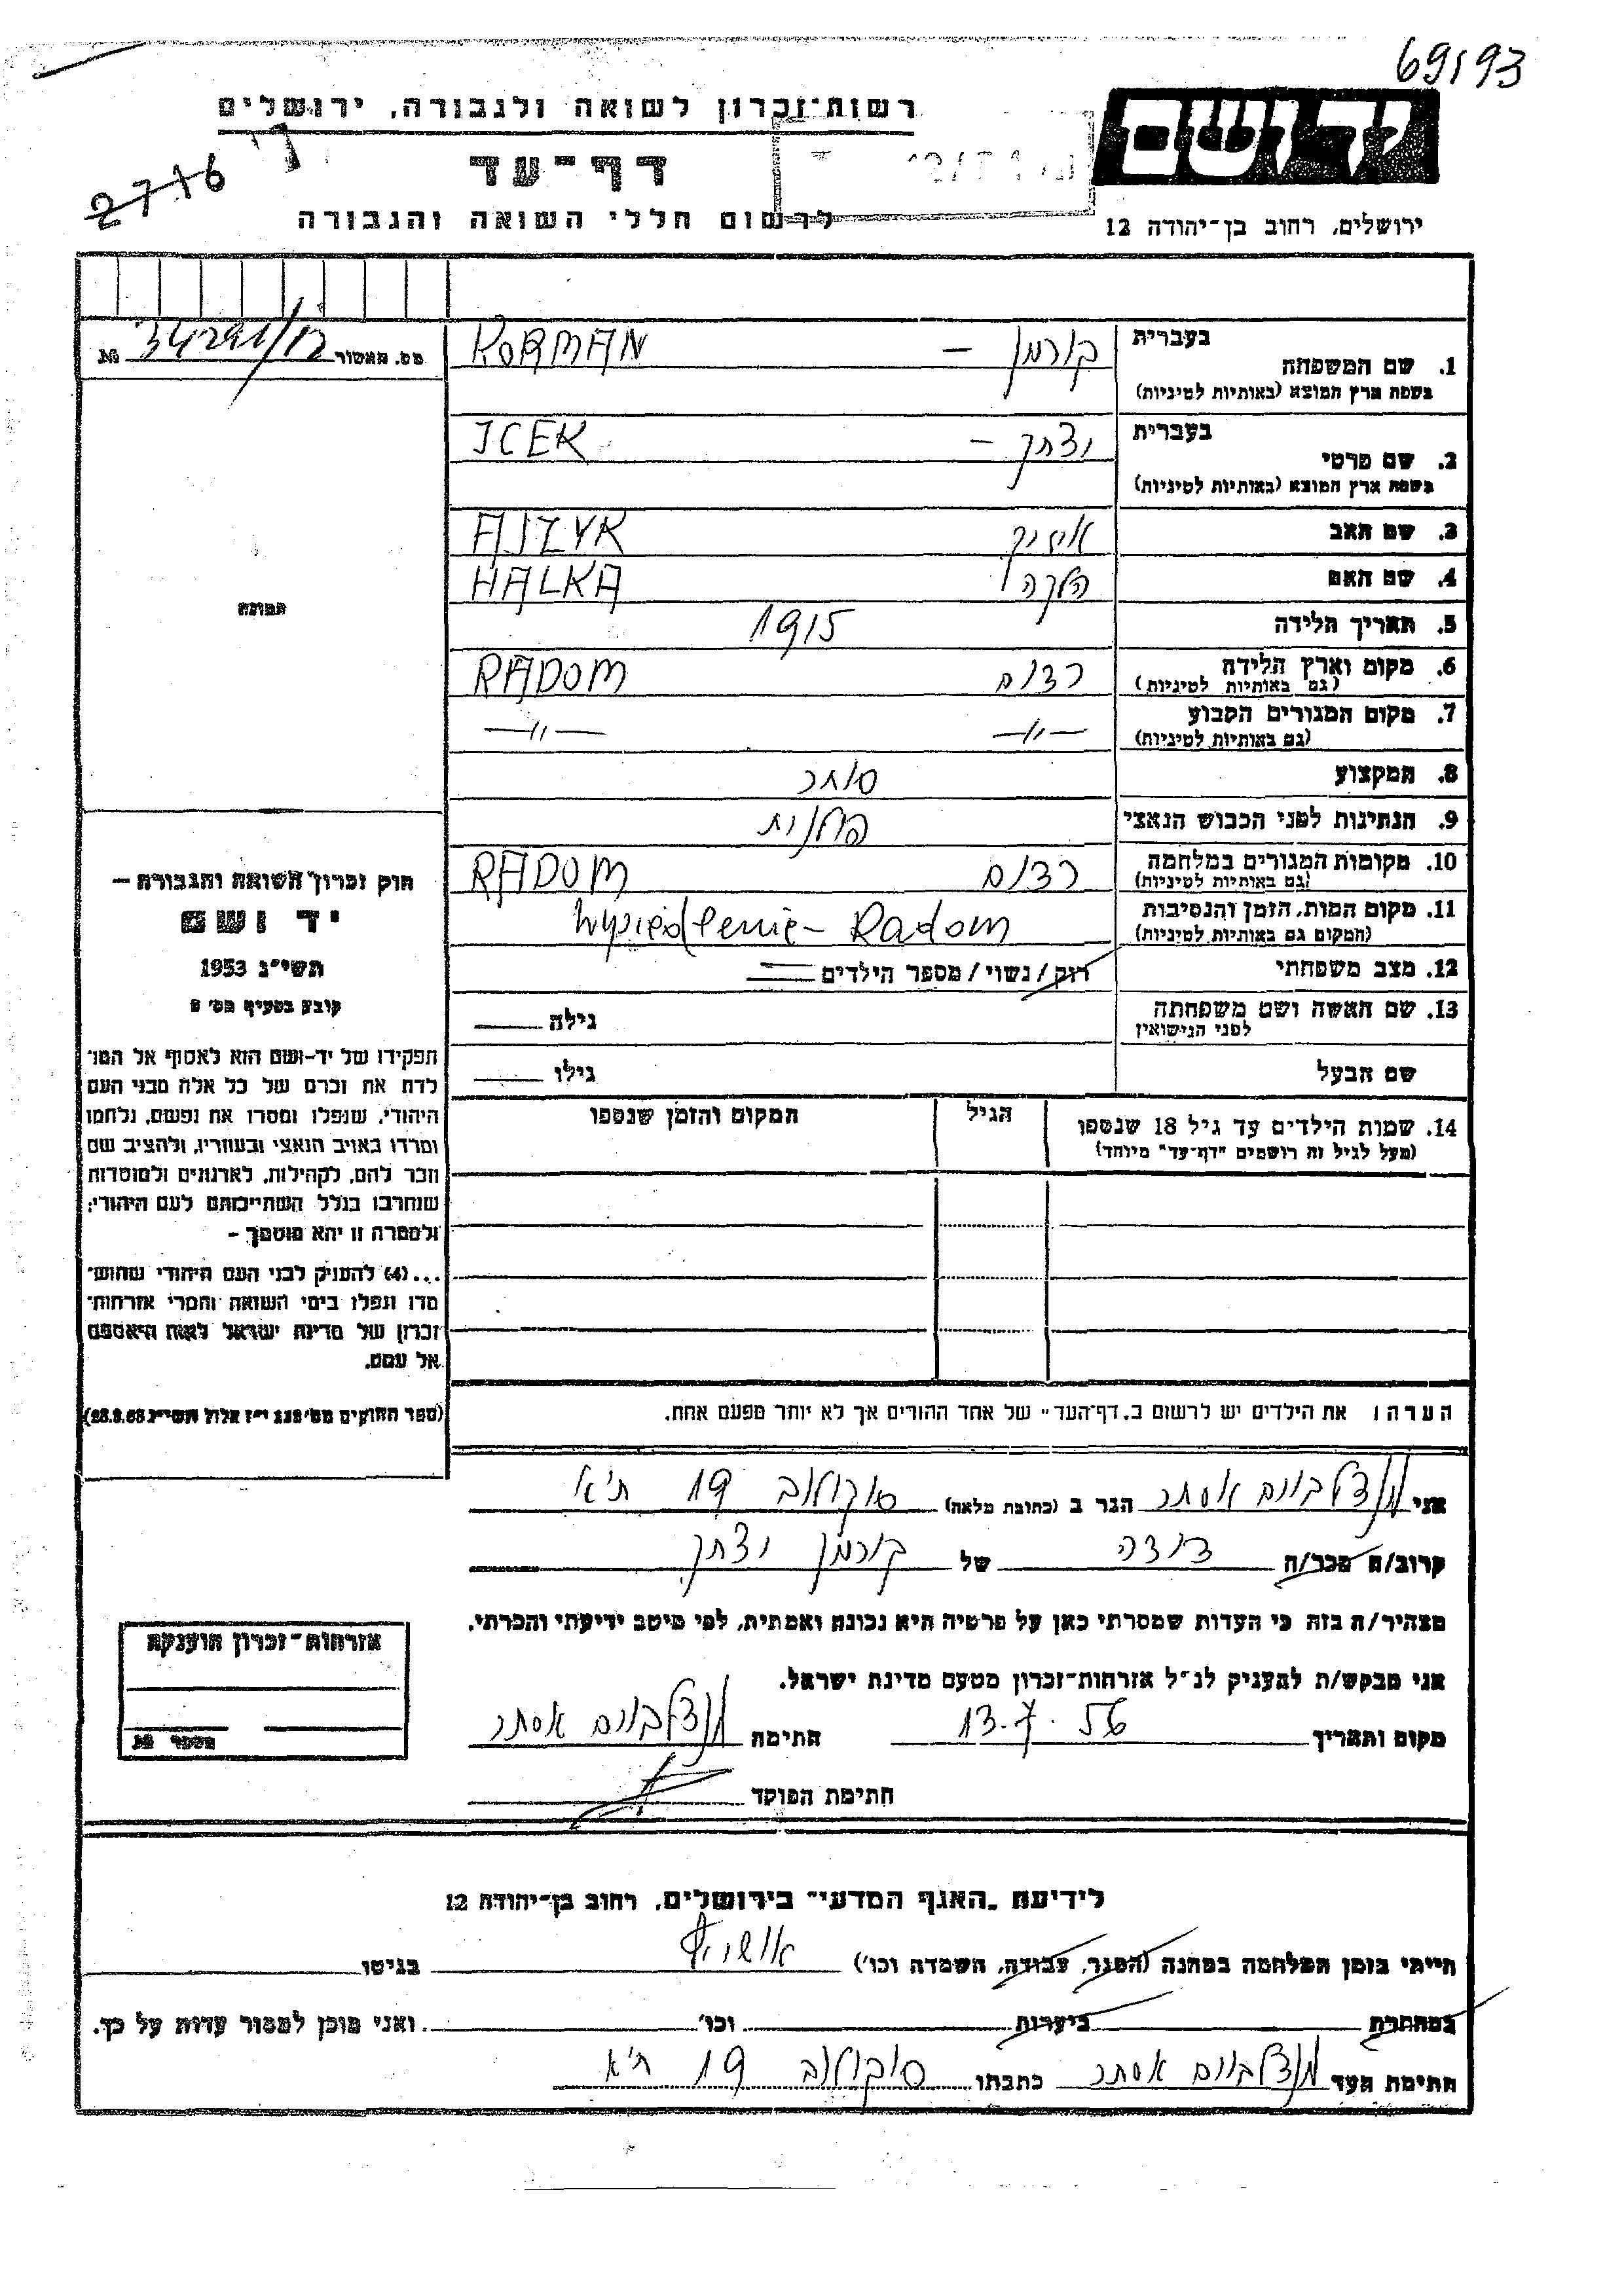 69193
רשות־זכרון לשואה ולגבורה, ירושלים
יד ושם
2716
דף־עד
לרשום חללי השואה והגבורה
ירושלים, רחוב בן־יהודה 12
בעברית
1. שם המשפחה
בשפת ארץ המוצא (באותיות לטיניות)
קורמן – KORMAN
מס. האשור 34291/12 №
בעברית
2. שם פרטי
בשפת ארץ המוצא (באותיות לטיניות)
יצחק – ICEK
3. שם האב אייזיק AJZYK
4. שם האם הלקה HALKA
5. תאריך הלידה 1915
תמונה
6. מקום וארץ הלידה רדום RADOM
(גם באותיות לטיניות)
7. מקום המגורים הקבוע —״— —״—
(גם באותיות לטיניות)
8. המקצוע סוחר
9. הנתינות לפני הכבוש הנאצי פולנית
10. מקומות המגורים במלחמה רדום RADOM
(גם באותיות לטיניות)
11. מקום המות, הזמן והנסיבות Wysiedlenie - Radom
(המקום גם באותיות לטיניות)
12. מצב משפחתי רווק/נשוי/מספר הילדים
13. שם האשה ושם משפחתה גילה
לפני הנישואין
שם הבעל גילו
14. שמות הילדים עד גיל 18 שנספו הגיל המקום והזמן שנספו
(מעל לגיל זה רושמים "דף־עד" מיוחד)
חוק זכרון השואה והגבורה –
יד ושם
תשי"ג 1953
קובע בסעיף מס׳ 2
תפקידו של יד־ושם הוא לאסוף אל המו־
לדת את זכרם של כל אלה מבני העם
היהודי, שנפלו ומסרו את נפשם, נלחמו
ומרדו באויב הנאצי ובעוזריו, ולהציב שם
וזכר להם, לקהילות, לארגונים ולמוסדות
שנחרבו בגלל השתייכותם לעם היהודי;
ולמטרה זו יהא מוסמך –
...(4) להעניק לבני העם היהודי שהוש־
מדו ונפלו בימי השואה והמרי אזרחות־
זכרון של מדינת ישראל לאות היאספם
אל עמם.
(ספר החוקים מס׳ 132 י"ז אלול תשי"ג 28.8.53)
הערה: את הילדים יש לרשום ב„דף־העד" של אחד ההורים אך לא יותר מפעם אחת.
אני מנדלבוים אסתר הגר ב (כתובת מלאה) סוקולוב 19 ת״א
קרוב/ה מכר/ה דודה של קורמן יצחק
מצהיר/ה בזה כי העדות שמסרתי כאן על פרטיה היא נכונה ואמתית, לפי מיטב ידיעתי והכרתי.
אני מבקש/ת להעניק לנ"ל אזרחות־זכרון מטעם מדינת ישראל.
מקום ותאריך 13.7.56 חתימה מנדלבוים אסתר
חתימת הפוקד
אזרחות־זכרון הוענקה
מספר №
לידיעת „האגף המדעי" בירושלים, רחוב בן־יהודה 12
הייתי בזמן המלחמה במחנה (הסגר, עבודה, השמדה וכו׳) אושויץ בגיטו
במחתרת ביערות וכו׳ ואני מוכן למסור עדות על כך.
חתימת העד מנדלבוים אסתר כתבתו סוקולוב 19 ת״א